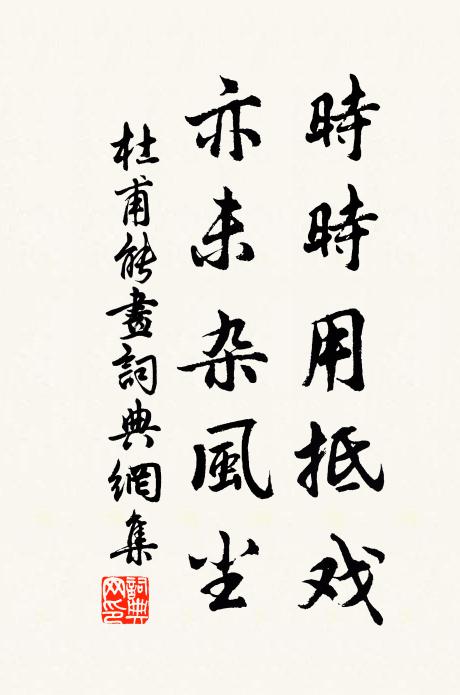 時時用抵戏
亦未杂風尘
杜甫能畫詞典網集
詞典網印